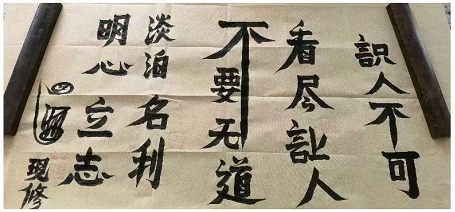 识人不可
看尽让人
不要无道
淡泊名利
明心立志
现修